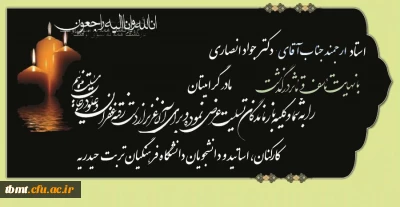 انالله و انا الیه راجعون
استاد ارجمند جناب آقای دکتر جواد انصاری
با نهایت تاسف و تاثر درگذشت مادر گرامیتان
را به شما و کلیه بازماندگان تسلیت عرض نموده و برای آن عزیز از دست رفته غفران الهی
کارکنان، اساتید و دانشجویان دانشگاه فرهنگیان تربت حیدریه
tbmt.cfu.ac.ir